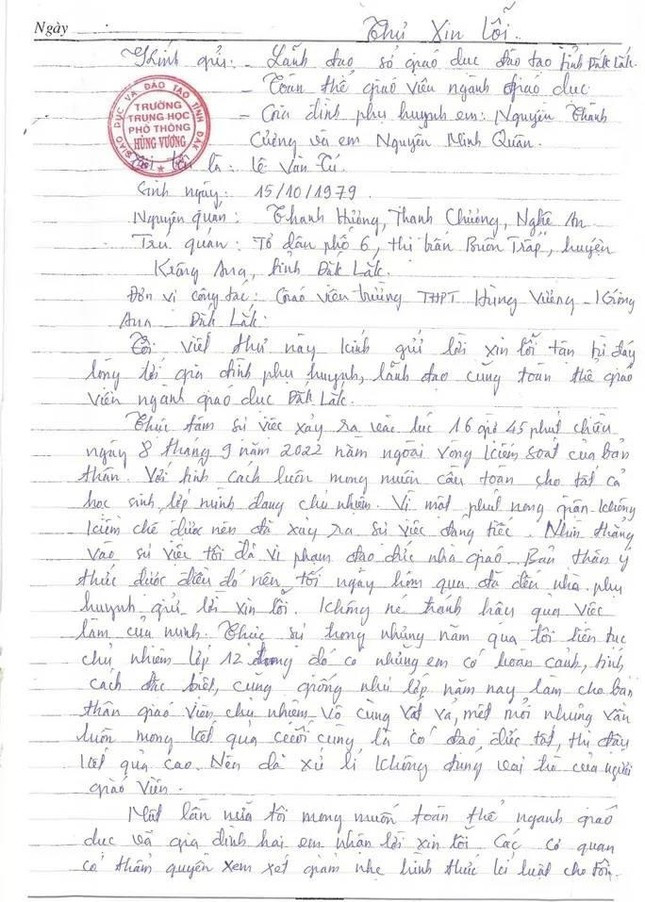 Ngày
Thư Xin Lỗi.
Kính gửi: - Lãnh đạo sở giáo dục đào tạo tỉnh Đắk Lắk.
- Toàn thể giáo viên ngành giáo dục
- Gia đình phụ huynh em: Nguyễn Thành
Cường và em Nguyễn Minh Quân.
TRƯỜNG
TRUNG HỌC
PHỔ THÔNG
HÙNG VƯƠNG
là: Lê Văn Tú
Sinh ngày: 15/10/1979
Nguyên quán: Thanh Hương, Thanh Chương, Nghệ An
Trú quán: Tổ dân phố 6, thị trấn Buôn Trấp, huyện
Krông Ana, tỉnh Đắk Lắk.
Đơn vị công tác: Giáo viên trường THPT Hùng Vương - Krông
Ana - Đắk Lắk.
Tôi viết thư này kính gửi lời xin lỗi tận từ đáy
lòng tới gia đình phụ huynh, lãnh đạo cùng toàn thể giáo
viên ngành giáo dục Đắk Lắk.
Thực tâm sự việc xảy ra vào lúc 16 giờ 45 phút chiều
ngày 8 tháng 9 năm 2022 nằm ngoài vòng kiểm soát của bản
thân. Với tính cách luôn mong muốn cầu toàn cho tất cả
học sinh lớp mình đang chủ nhiệm. Vì một phút nóng giận không
kiềm chế được nên đã xảy ra sự việc đáng tiếc. Nhìn thẳng
vào sự việc tôi đã vi phạm đạo đức nhà giáo. Bản thân ý
thức được điều đó nên tối ngày hôm qua đã đến nhà phụ
huynh gửi lời xin lỗi. Không né tránh hay qua việc
làm của mình. Thực sự trong những năm qua tôi liên tục
chủ nhiệm lớp 12 trong đó có những em có hoàn cảnh, tính
cách đặc biệt, cũng giống như lớp năm nay làm cho bản
thân giáo viên chủ nhiệm vô cùng vất vả, mệt mỏi nhưng vẫn
luôn mong kết quả cuối cùng là có đạo đức tốt, thi đậu
kết quả cao. Nên đã xử lí không đúng vai trò của người
giáo viên.
Một lần nữa tôi mong muốn toàn thể ngành giáo
dục và gia đình hai em nhận lời xin lỗi. Các cơ quan
có thẩm quyền xem xét giảm nhẹ hình thức kỉ luật cho tôi.